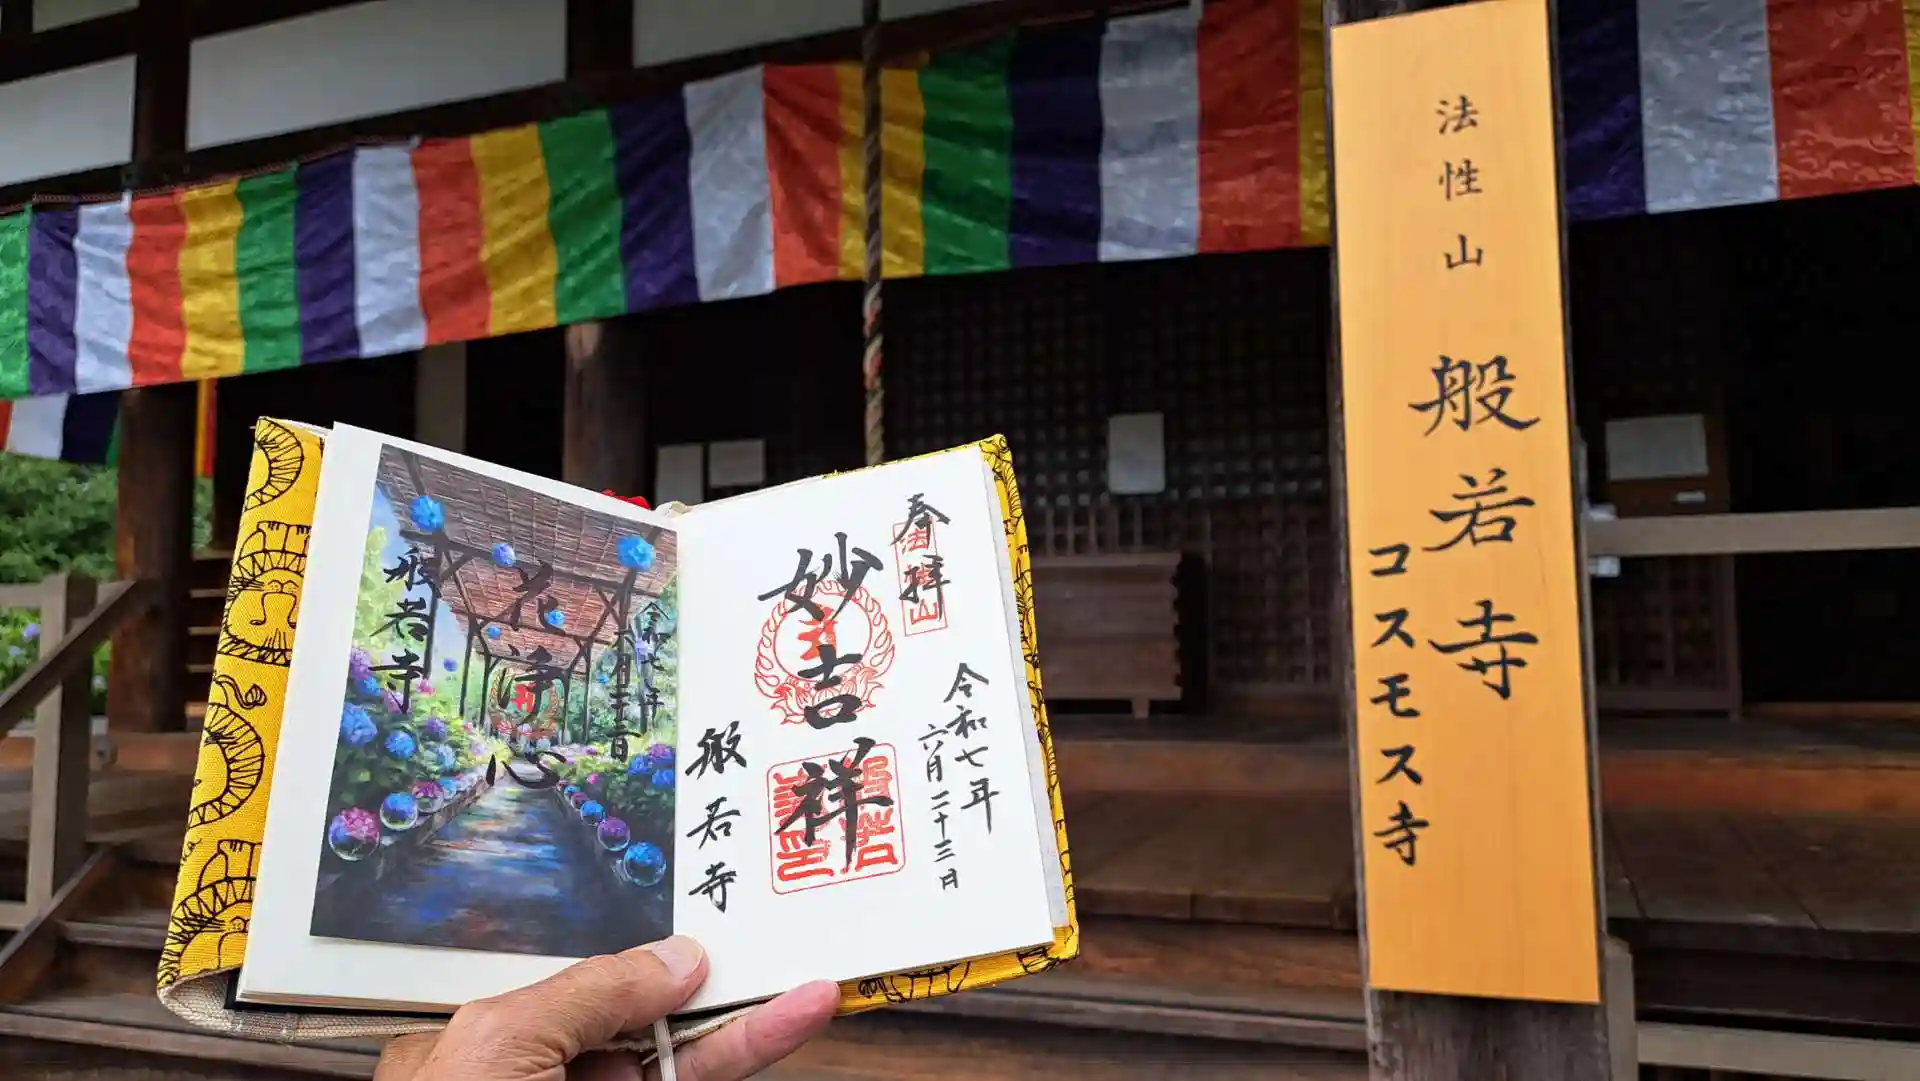 法性山
般若寺
コスモス寺
奉拝
法性山
妙吉祥
令和七年
六月二十三日
般若寺
令和七年
六月二十三日
花浄心
般若寺